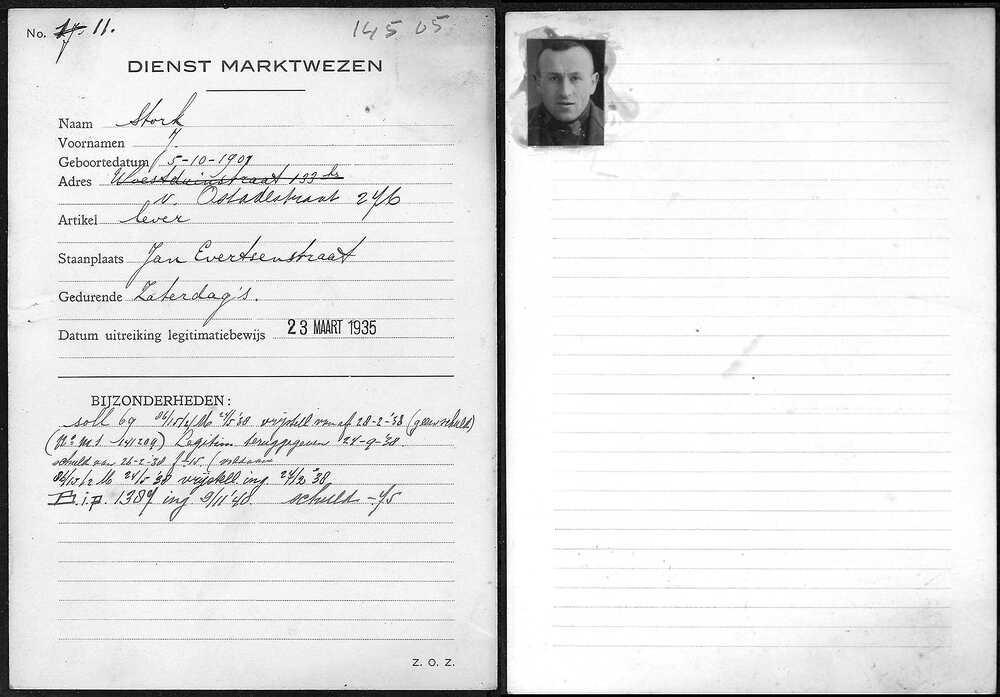 No. 17. 11.
145 05
DIENST MARKTWEZEN
Naam Stork
Voornamen J.
Geboortedatum 5-10-1901
Adres Woestduinstraat 133 hs
v. Ostadestraat 246
Artikel lever
Staanplaats Jan Evertsenstraat
Gedurende Zaterdag's.
Datum uitreiking legitimatiebewijs 23 MAART 1935
BIJZONDERHEDEN:
soll 69 86/15/2 M 24/5 '38 vrijstell vanaf 28-2-'38 (geen schuld)
(No M.1 141209) Legitim teruggegeven 24-9-'38.
schuld van 26-2-38
86/15/2 M 24/5 '38 vrijstell ing. 24/12 '38,
B.i.p. 1387 ing 9/11 '40 schuld -45
Z. O. Z.